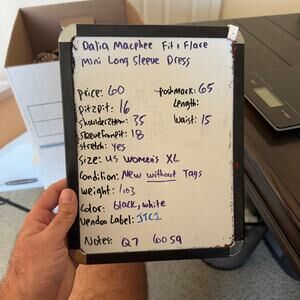 Dalia Macphee Fit & Flare
Mini Long Sleeve Dress
Price: 60
Poshmark: 65
Pit2pit: 16
Length:
shoulder2hem: 35
Waist: 15
Sleeve from pit: 18
stretch: yes
Size: US Women's XL
Condition: New without Tags
Weight: 1.03
Color: black, white
Vendoo Label: JTC1
Notes: Q7 6059